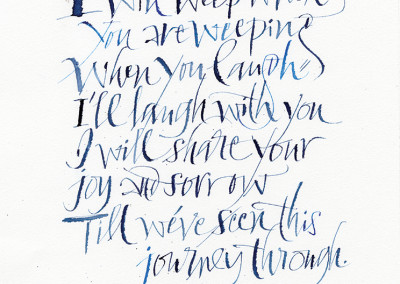 I will weep when
you are weeping
When you laugh
I'll laugh with you
I will share your
joy and sorrow
Till we've seen this
journey through.